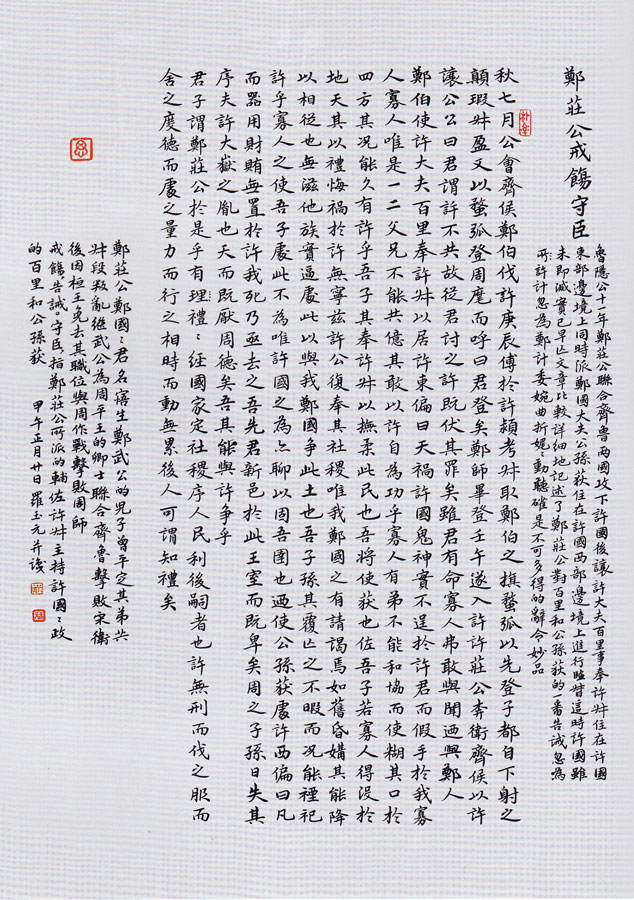 鄭莊公戒飭守臣
魯隱公十一年鄭莊公聯合齊魯兩國攻下許國後讓許大夫百里事奉許叔住在許國
東部邊境上同時派鄭國大夫公孫获住在許國西部邊境上進行監督這時許國雖
未即滅實已早亡文章比較詳細地記述了鄭莊公對百里和公孫获的一番告誡忽為
所許計忽為鄭計委婉曲折娓〻動聽確是不可多得的辭令妙品
秋七月公會齊侯鄭伯伐許庚辰傅於許潁考叔取鄭伯之旗蝥弧以先登子都自下射之
顛瑕叔盈又以蝥弧登周麾而呼曰君登矣鄭師畢登壬午遂入許許莊公奔衛齊侯以許
讓公公曰君謂許不共故從君討之許既伏其罪矣雖君有命寡人弗敢與聞迺與鄭人
鄭伯使許大夫百里奉許叔以居許東偏曰天禍許國鬼神實不逞於許君而假手於我寡
人寡人唯是一二父兄不能共億其敢以許自為功乎寡人有弟不能和協而使糊其口於
四方其況能久有許乎吾子其奉許叔以撫柔此民也吾將使获也佐吾子若寡人得沒於
地天其以禮悔禍於許無寧茲許公復奉其社稷唯我鄭國之有請謁焉如舊昏媾其能降
以相從也無滋他族實逼處此以與我鄭國爭此土也吾子孫其覆亡之不暇而況能禋祀
許乎寡人之使吾子處此不為唯許國之為亦聊以固吾圉也迺使公孫获處許西偏曰凡
而器用財賄無置於許我死乃亟去之吾先君新邑於此王室而既卑矣周之子孫日失其
序夫許大嶽之胤也天而既厭周德矣吾其能與許爭乎
君子謂鄭莊公於是乎有理禮〻經國家定社稷序人民利後嗣者也許無刑而伐之服而
舍之度德而處之量力而行之相時而動無累後人可謂知禮矣
鄭莊公鄭國〻君名寤生鄭武公的兒子曾平定其弟共
叔段叛亂繼武公為周平王的卿士聯合齊魯擊敗宋衛
後因桓王免去其職位與周作戰擊敗周師
戒飭告誡。守臣指鄭莊公所派的輔佐許叔主持許國〻政
的百里和公孫获
甲午正月廿日羅玉元并識